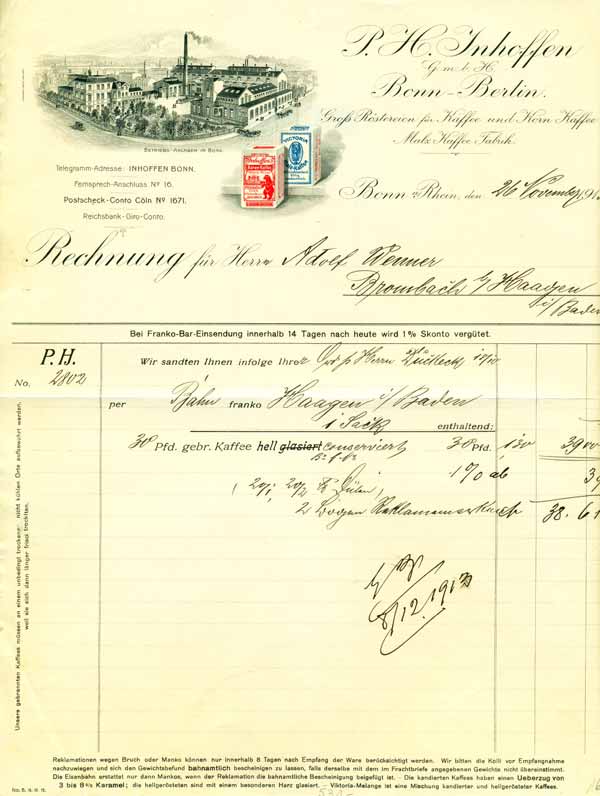 P. H. Inhoffen
G.m.b.H.
Bonn-Berlin.
Groß Röstereien für Kaffee und Korn Kaffee
Malz Kaffee Fabrik.
Betriebs-Anlagen in Bonn
Telegramm-Adresse: INHOFFEN BONN.
Fernsprech-Anschluss No 16.
Postscheck-Conto Cöln No 1671.
Reichsbank-Giro-Conto.
VICTORIA
Bonn a/Rhein, den 26 November 191
Rechnung für Herrn Adolf Wenner
Brombach b/ Haagen
i/Baden
Bei Franko-Bar-Einsendung innerhalb 14 Tagen nach heute wird 1% Skonto vergütet.
P.H.
No. 2802
Wir sandten Ihnen infolge Ihrer Ord. p. Herrn
per Bahn franko Haagen i/Baden
i Sack enthaltend:
30 Pfd. gebr. Kaffee hell glasiert conserviert 30 Pfd. 130 39 00
1% ab 39
2 Bogen 38.61
8/12.1913
Unsere gebrannten Kaffees müssen an einem unbedingt trockenen, nicht kühlen Orte aufbewahrt werden,
weil sie sich dann länger frisch erhalten.
Reklamationen wegen Bruch oder Manko können nur innerhalb 8 Tagen nach Empfang der Ware berücksichtigt werden. Wir bitten die Kolli vor Empfangnahme
nachzuwiegen und sich den Gewichtsbefund bahnamtlich bescheinigen zu lassen, falls derselbe mit dem im Frachtbriefe angegebenen Gewichte nicht übereinstimmt.
Die Eisenbahn erstattet nur dann Mankos, wenn der Reklamation die bahnamtliche Bescheinigung beigefügt ist. - Die kandierten Kaffees haben einen Ueberzug von
3 bis 8% Karamel; die hellgerösteten sind mit einem besonderen Harz glasiert. - Viktoria-Melange ist eine Mischung kandierter und hellgerösteter Kaffees.